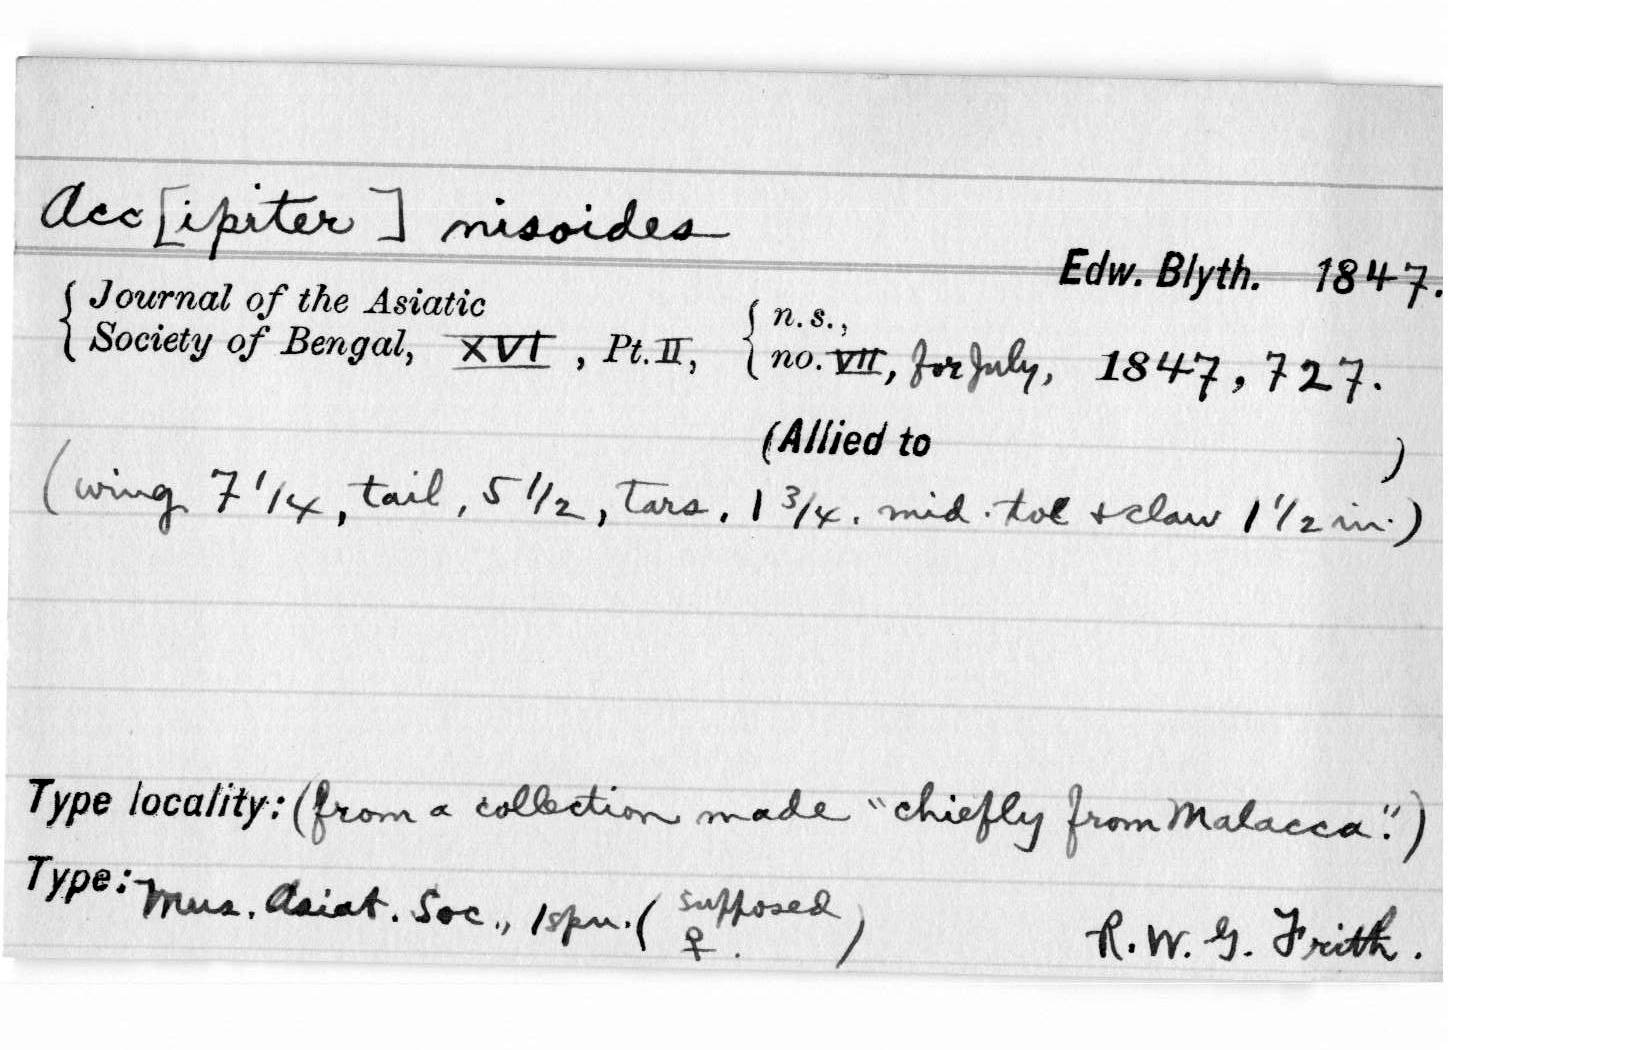 Acc[ipiter] nisoides
Edw. Blyth. 1847.
Journal of the Asiatic
Society of Bengal, XVI, Pt. II, n.s., no. VII, for July, 1847, 727.
(Allied to )
(wing 7 1/4, tail, 5 1/2, tars. 1 3/4. mid. toe + claw 1 1/2 in.)
Type locality: (from a collection made "chiefly from Malacca".)
Type: Mus. Asiat. Soc., 1 spn. (supposed ♀.)
R. W. G. Frith.